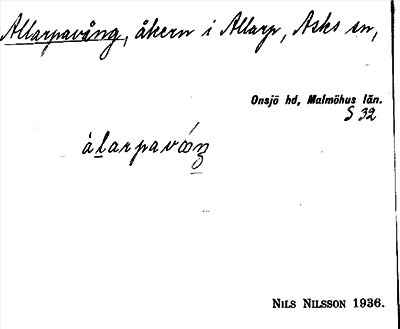 Allarpavång, åkern i Allarp, Asks sn,
Onsjö hd, Malmöhus län.
S 32
àlarpavóŋ
NILS NILSSON 1936.